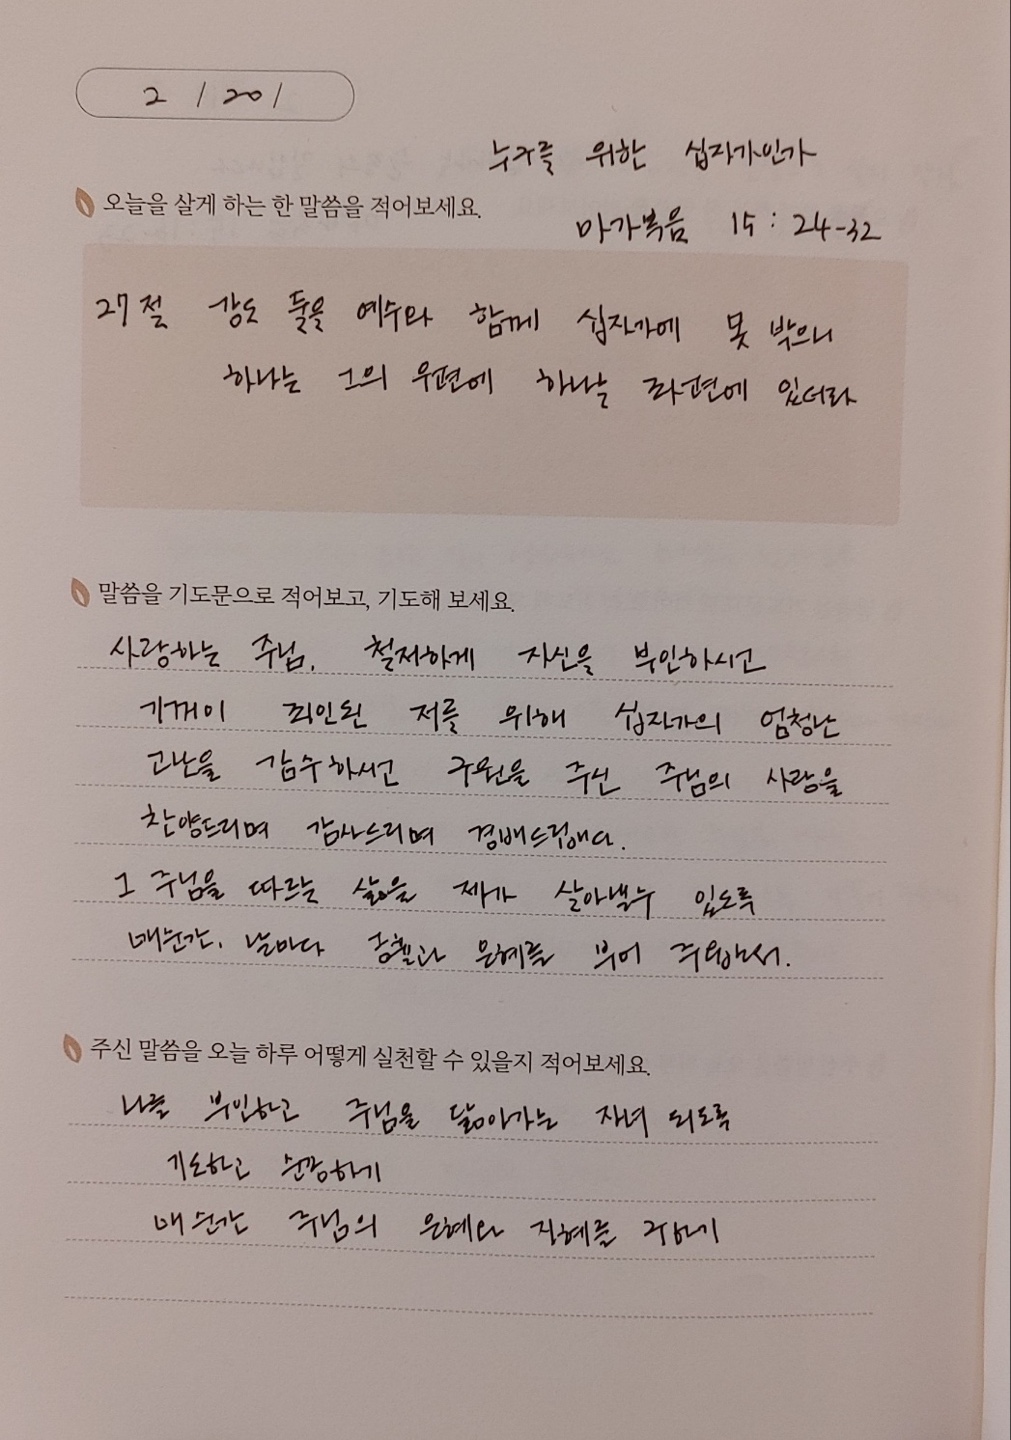 2 / 20 /
누구를 위한 십자가인가
오늘을 살게 하는 한 말씀을 적어보세요.
마가복음 15 : 24-32
27절 강도 둘을 예수와 함께 십자가에 못 박으니
하나는 그의 우편에 하나는 좌편에 있더라
말씀을 기도문으로 적어보고, 기도해 보세요.
사랑하는 주님, 철저하게 자신을 부인하시고
기꺼이 죄인된 저를 위해 십자가의 엄청난
고난을 감수하시고 구원을 주신 주님의 사랑을
찬양드리며 감사드리며 경배드립니다.
그 주님을 따르는 삶을 제가 살아낼수 있도록
매순간, 날마다 긍휼과 은혜를 부어 주옵소서.
주신 말씀을 오늘 하루 어떻게 실천할 수 있을지 적어보세요.
나를 부인하고 주님을 닮아가는 자녀 되도록
기도하고 순종하기
매 순간 주님의 은혜와 지혜를 구하기